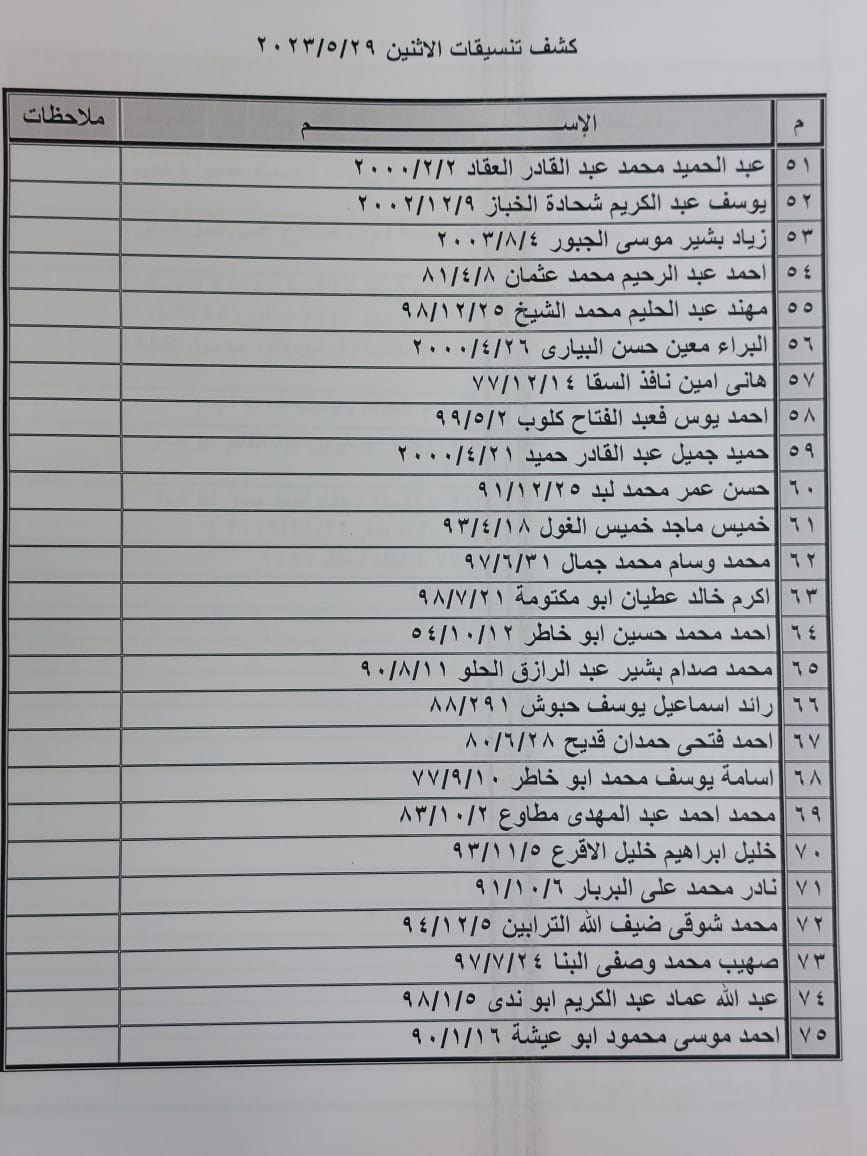 كشف تنسيقات الاثنين ٢٠٢٣/٥/٢٩
م الإســـــــــم ملاحظات
٥١ عبد الحميد محمد عبد القادر العقاد ٢٠٠٠/٢/٢
٥٢ يوسف عبد الكريم شحادة الخباز ٢٠٠٢/١٢/٩
٥٣ زياد بشير موسى الجبور ٢٠٠٣/٨/٤
٥٤ احمد عبد الرحيم محمد عثمان ٨١/٤/٨
٥٥ مهند عبد الحليم محمد الشيخ ٩٨/١٢/٢٥
٥٦ البراء معين حسن البيارى ٢٠٠٠/٤/٢٦
٥٧ هانى امين نافذ السقا ٧٧/١٢/١٤
٥٨ احمد يوس فعبد الفتاح كلوب ٩٩/٥/٢
٥٩ حميد جميل عبد القادر حميد ٢٠٠٠/٤/٢١
٦٠ حسن عمر محمد لبد ٩١/١٢/٢٥
٦١ خميس ماجد خميس الغول ٩٣/٤/١٨
٦٢ محمد وسام محمد جمال ٩٧/٦/٣١
٦٣ اكرم خالد عطيان ابو مكتومة ٩٨/٧/٢١
٦٤ احمد محمد حسين ابو خاطر ٥٤/١٠/١٢
٦٥ محمد صدام بشير عبد الرازق الحلو ٩٠/٨/١١
٦٦ رائد اسماعيل يوسف حبوش ٨٨/٢٩١
٦٧ احمد فتحى حمدان قديح ٨٠/٦/٢٨
٦٨ اسامة يوسف محمد ابو خاطر ٧٧/٩/١٠
٦٩ محمد احمد عبد المهدى مطاوع ٨٣/١٠/٢
٧٠ خليل ابراهيم خليل الاقرع ٩٣/١١/٥
٧١ نادر محمد على البربار ٩١/١٠/٦
٧٢ محمد شوقى ضيف الله الترابين ٩٤/١٢/٥
٧٣ صهيب محمد وصفى البنا ٩٧/٧/٢٤
٧٤ عبد الله عماد عبد الكريم ابو ندى ٩٨/١/٥
٧٥ احمد موسى محمود ابو عيشة ٩٠/١/١٦